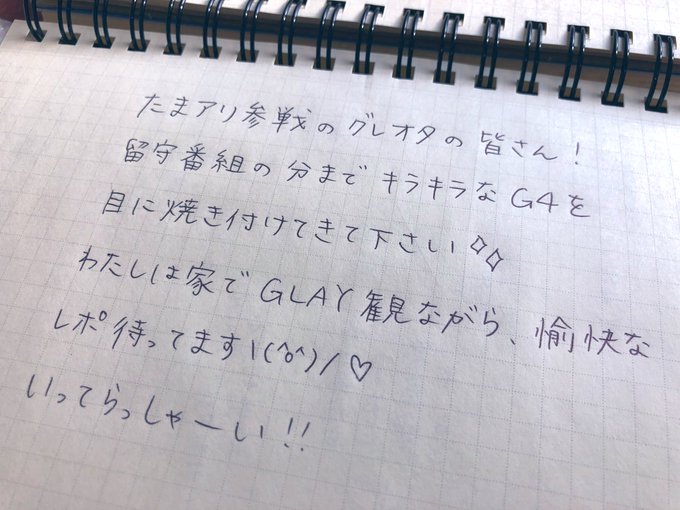 たまアリ参戦のグレオタの皆さん!
留守番組の分までキラキラなG4を
目に焼き付けてきて下さい✧✧
わたしは家でGLAY観ながら、愉快な
レポ待ってます\(^o^)/♡
いってらっしゃーい!!